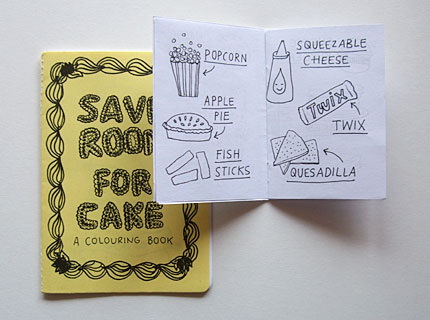 SAVE
ROOM
FOR
CAKE
A COLOURING BOOK
POPCORN
APPLE
PIE
FISH
STICKS
SQUEEZABLE
CHEESE
Twix
TWIX
QUESADILLA